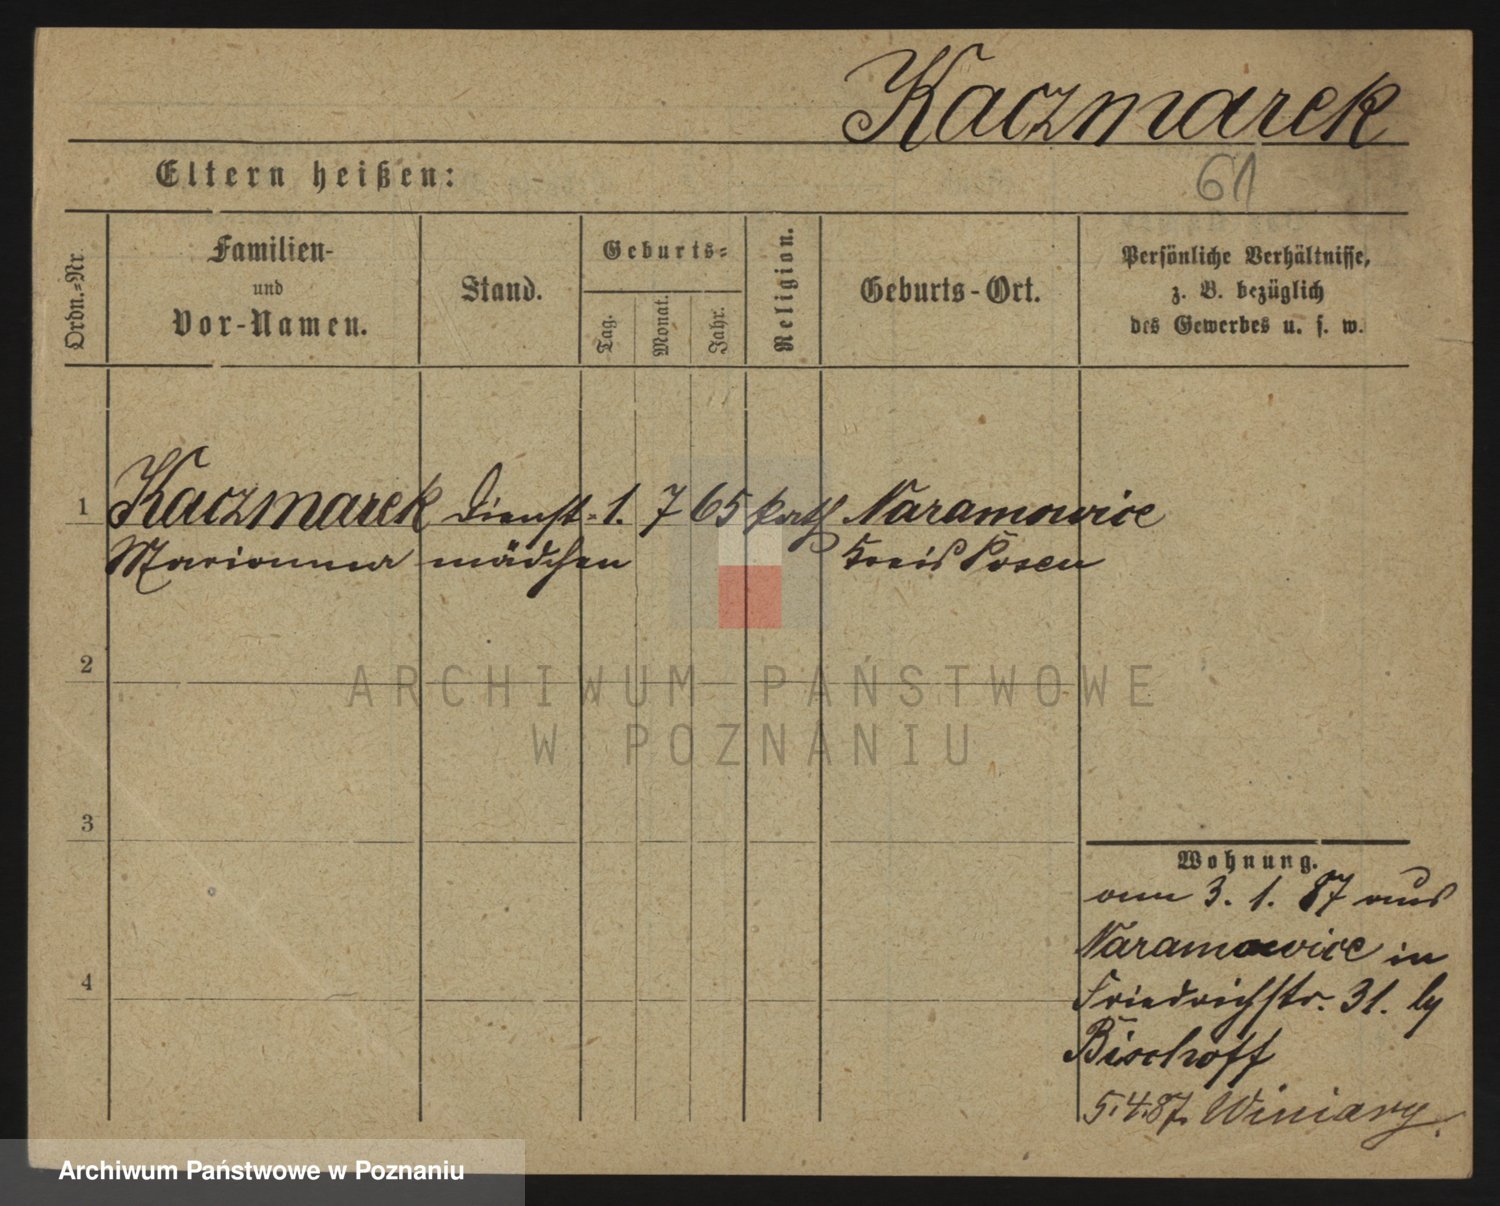 Kaczmarek
Eltern heißen:
61
Ordn.=Nr.
Familien-
und
Vor-Namen.
Stand.
Geburts=
Tag.
Monat.
Jahr.
Religion.
Geburts-Ort.
Persönliche Verhältnisse,
z. B. bezüglich
des Gewerbes u. s. w.
1 Kaczmarek Dienst- 1. 7 65 kath Naramowice
Marianna mädchen Kreis Posen
2
ARCHIWUM PAŃSTWOWE
W POZNANIU
3
Wohnung.
am 3. 1. 87 aus
Naramowice in
4
Friedrichstr. 31. by
Bischoff
5.4.87. Winiary.
Archiwum Państwowe w Poznaniu